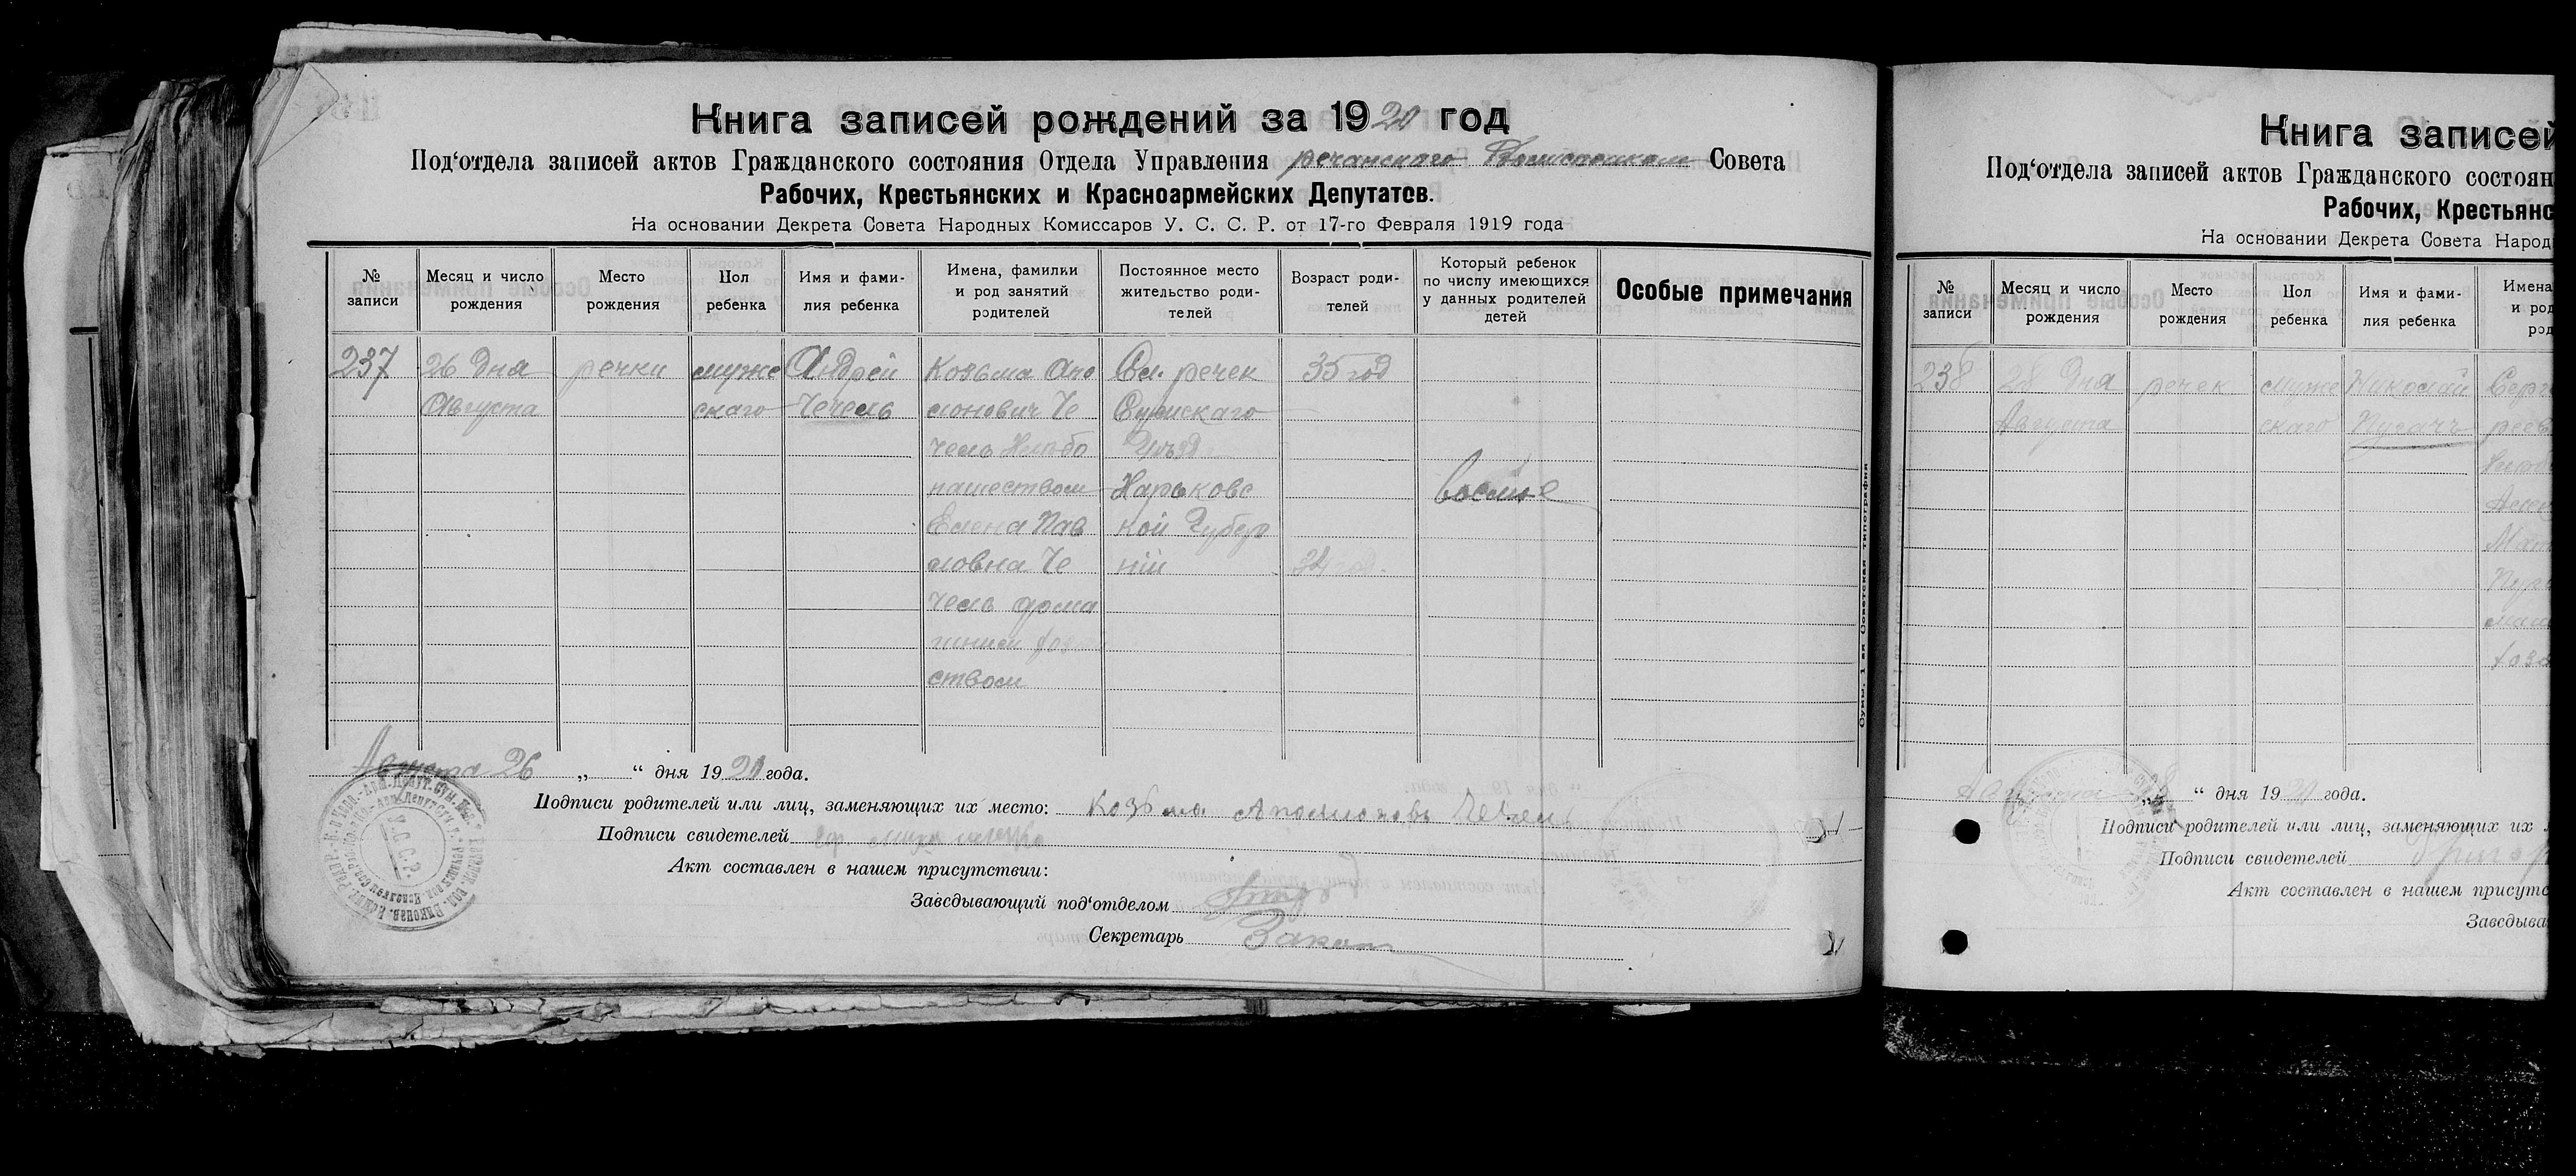 Книга записей рождений за 1920 год
Под‘отдела записей актов Гражданского состояния Отдела Управления речанскаго Совета
Рабочих, Крестьянских и Красноармейских Депутатов.
На основании Декрета Совета Народных Комиссаров У. С. С. Р. от 17-го Февраля 1919 года
№ записи
Месяц и число рождения
Место рождения
Пол ребенка
Имя и фами-
лия ребенка
Имена, фамилии
и род занятий
родителей
Постоянное место
жительство роди-
телей
Возраст роди-
телей
Который ребенок
по числу имеющихся
у данных родителей
детей
Особые примечания
237
26 дня
Августа
речки
муже
скаго
Андрей
Чечель
Козьма Апо
лонович Че
чель Хлебо
пашеством
Елена Пав
ловна Че
чель дома
шним
ством
Сел. речек
Сумскаго
Уезд
Харьковс
кой Губер
ний
35 год
34 год.
восмые
Сумы. 1-ая Советская типография
Августа 26 „ “ дня 1920 года.
Подписи родителей или лиц, заменяющих их место: Козьма Аполионовъ Чечель
Подписи свидетелей
Акт составлен в нашем присутствии:
Заведывающий под‘отделом
Секретарь
У.С.С.Р.
Книга записей
Под‘отдела записей актов Гражданского состоян
Рабочих, Крестьянс
На основании Декрета Совета Народ
№ записи
Месяц и число рождения
Место рождения
Пол ребенка
Имя и фами-
лия ребенка
Имена
и род
род
238
28 дня
Августа
речек
муже
скаго
Николай
Пугачъ
Серге
Августа 28 “ дня 1920 года.
Подписи родителей или лиц, заменяющих их
Подписи свидетелей Григор
Акт составлен в нашем присутс
Заведыва